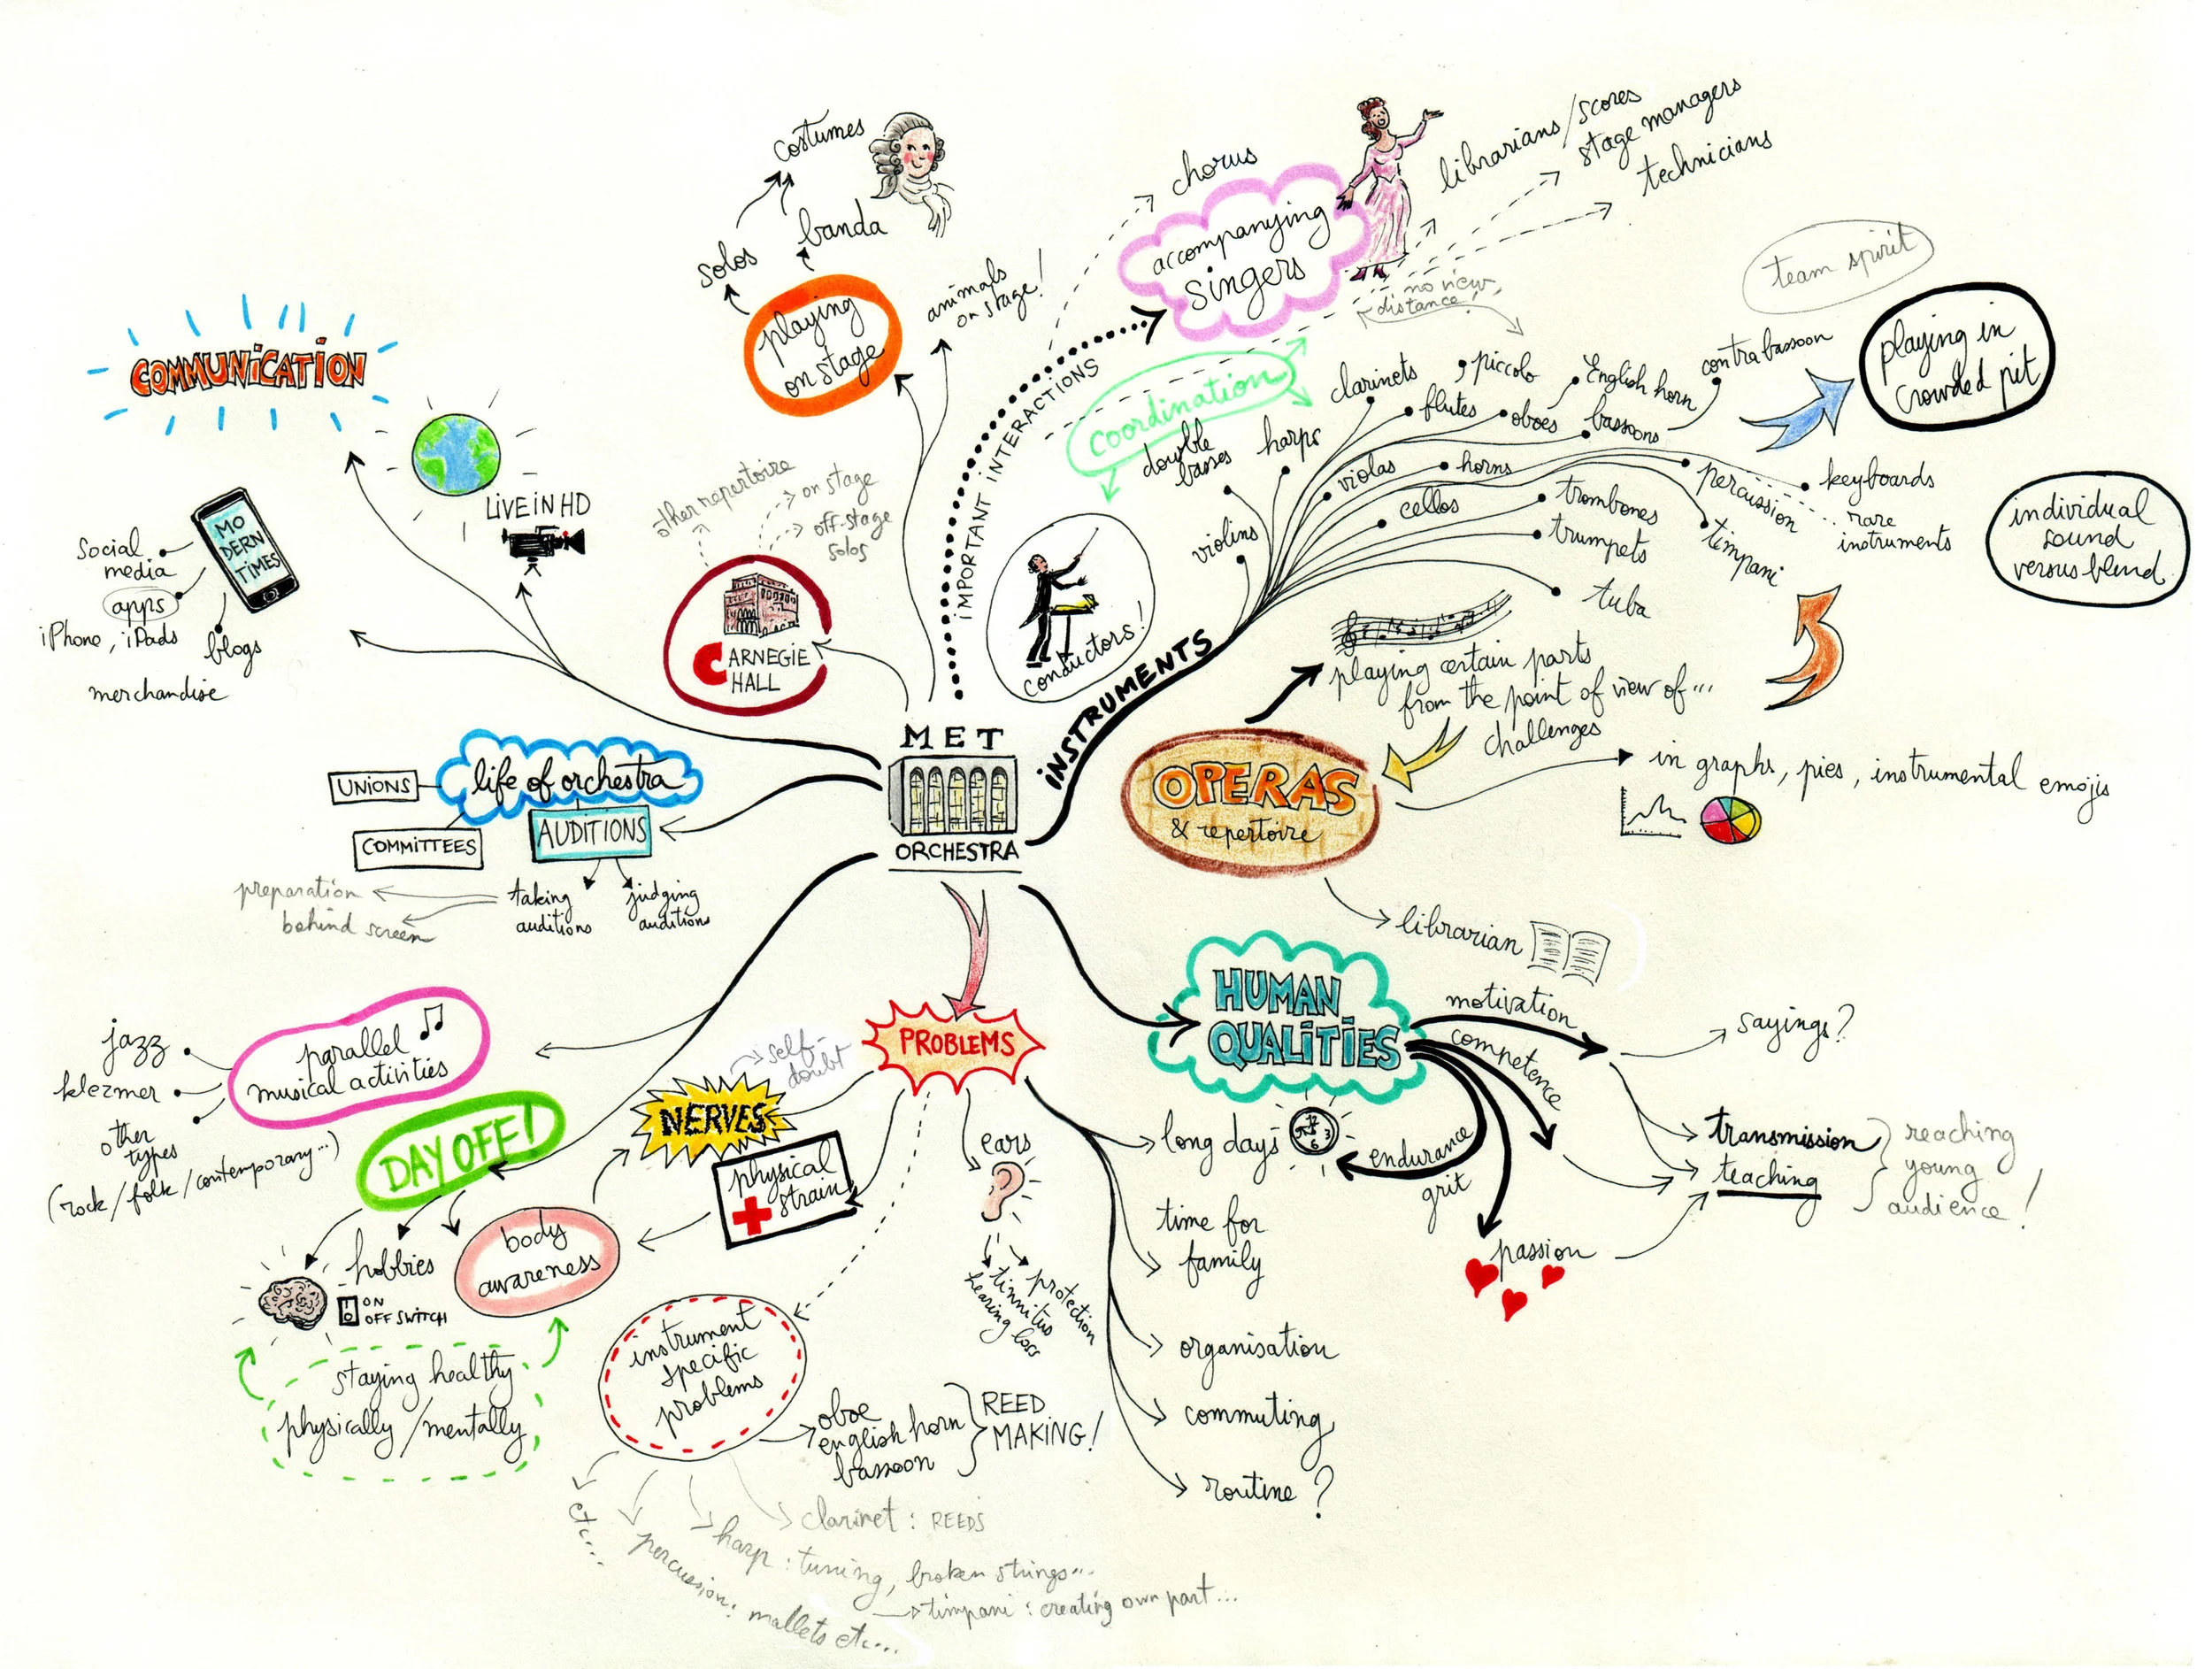 MET
ORCHESTRA
COMMUNICATION
LIVE IN HD
MO
DERN
TIMES
social
media
apps
iPhone, iPads
blogs
merchandise
costumes
solos
banda
playing
on stage
animals
on stage!
other repertoire
on stage
off-stage
solos
CARNEGIE
HALL
IMPORTANT INTERACTIONS
chorus
accompanying
singers
librarians/scores
stage managers
technicians
no view,
distance!
coordination
conductors!
INSTRUMENTS
violins
double
basses
harps
clarinets
piccolo
flutes
English horn
oboes
contrabassoon
bassoons
violas
horns
cellos
trombones
trumpets
tuba
percussion
timpani
keyboards
rare
instruments
team spirit
playing in
crowded pit
individual
sound
versus blend
playing certain parts
from the point of view of...
challenges
OPERAS
& repertoire
in graphs, pies, instrumental emojis
librarian
UNIONS
life of orchestra
COMMITTEES
AUDITIONS
taking
auditions
judging
auditions
preparation
behind screen
parallel
musical activities
jazz
klezmer
other
types
(rock/folk/contemporary...)
DAY OFF!
hobbies
ON
OFF SWITCH
body
awareness
staying healthy
physically/mentally
PROBLEMS
NERVES
self-
doubt
physical
strain
ears
tinnitus
hearing loss
protection
instrument
specific
problems
oboe
english horn
bassoon
REED
MAKING!
clarinet: REEDS
harp: tuning, broken strings...
timpani: creating own part...
percussion: mallets etc...
etc...
long days
12
3
6
time for
family
organisation
commuting
routine?
HUMAN
QUALITIES
motivation
competence
endurance
grit
passion
sayings?
transmission
teaching
reaching
young
audience!